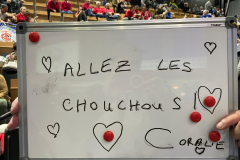 ALLEZ LES
CHOUCHOUS !
CORALIE